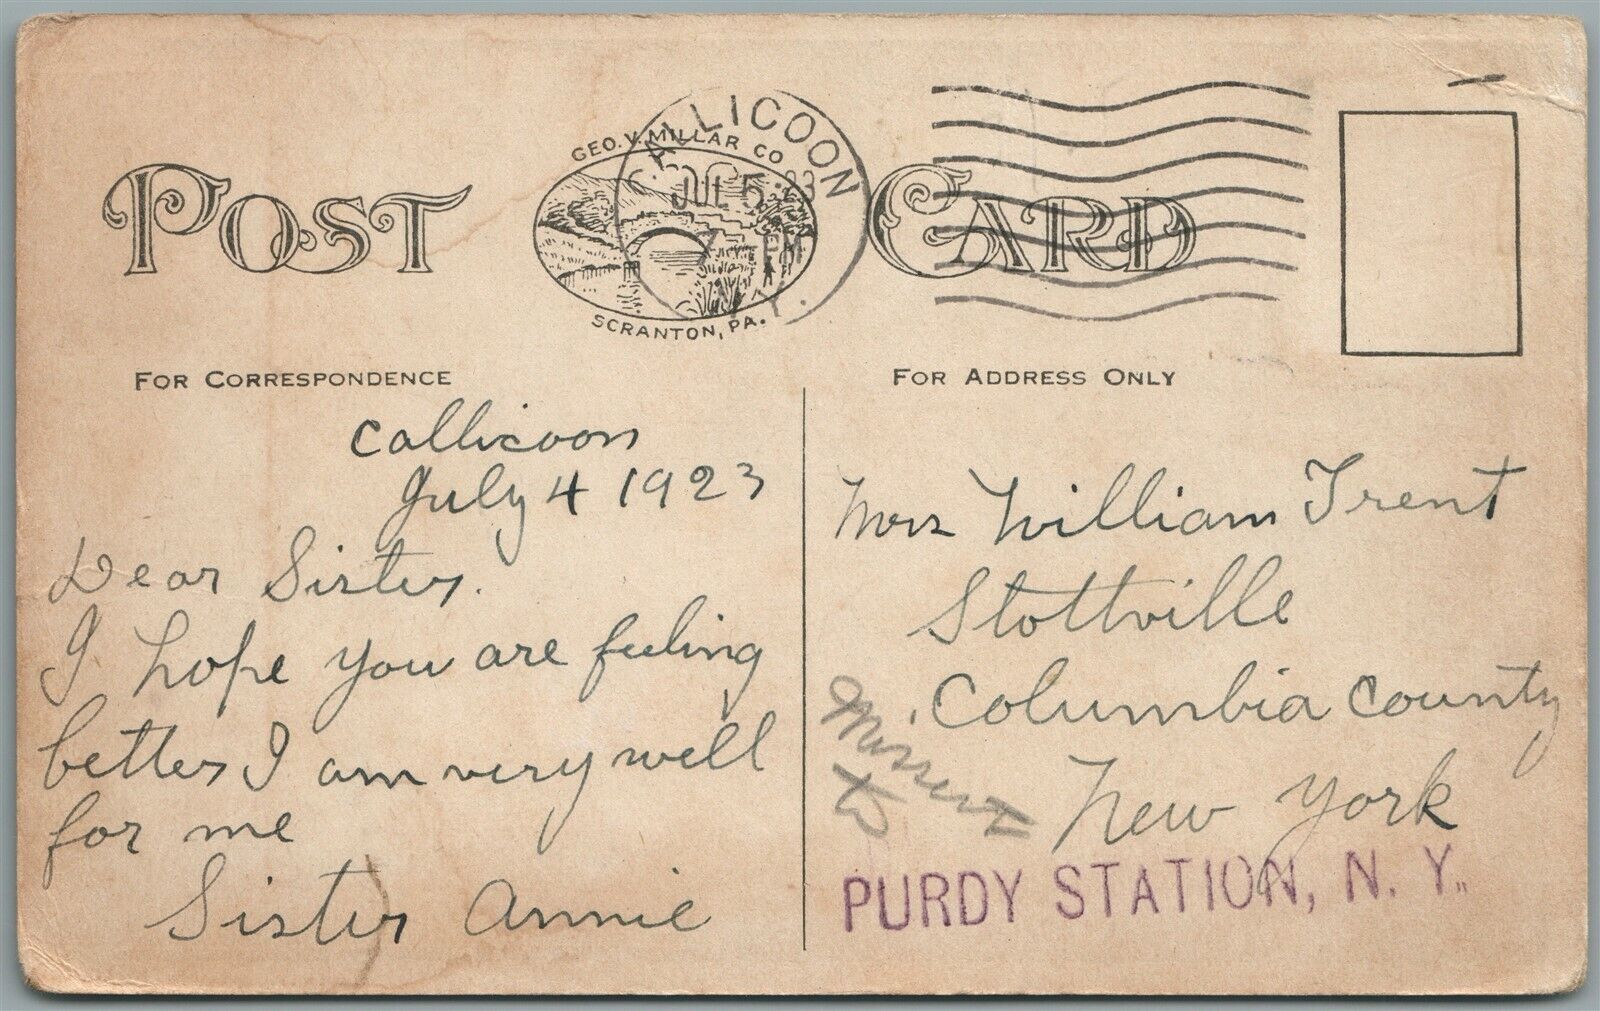 POST CARD
GEO. V. MILLAR CO
SCRANTON, PA.
CALLICOON
JUL 5 23
PM
N.Y.
FOR CORRESPONDENCE
FOR ADDRESS ONLY
Callicoon
July 4 1923
Dear Sister.
I hope you are feeling
better I am very well
for me
Sister Annie
Mrs William Trent
Stottville
Columbia County
New York
Missent
to
PURDY STATION, N. Y.